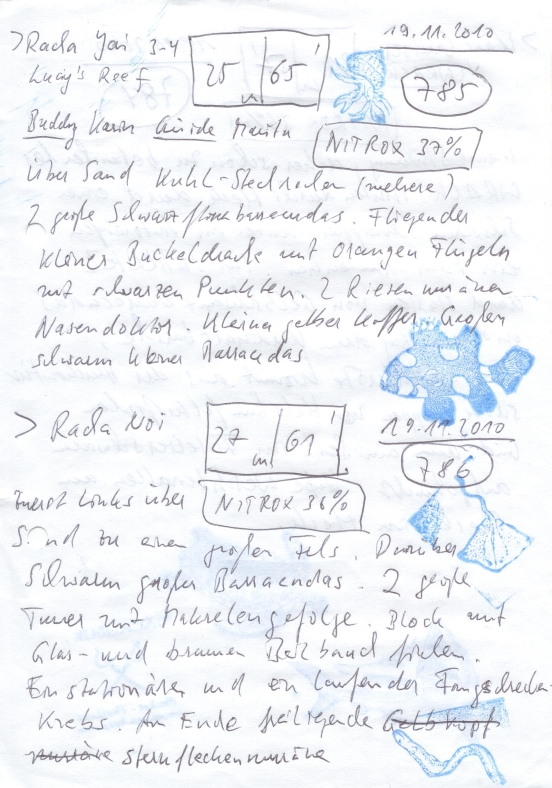 > Racha Yai 3-4
Lucy's Reef
25 m | 65'
19.11.2010
785
Buddy Karin Guide Marita
NITROX 37%
Über Sand Kuhl-Stechrochen (mehrere)
2 große Schwarzflossenbarracudas. Fliegender
kleiner Buckeldrache mit orangen Flügeln
mit schwarzen Punkten. 2 Riesenmuränen
Nasendoktor. Kleiner gelber Koffer. Großer
schwarm kleiner Barracudas
> Racha Noi
27 m | 61'
19.11.2010
786
NITROX 36%
Zuerst Links über
Sand zu einem großen Fels. Darüber
Schwarm großer Barracudas. 2 große
Tuner mit Makrelengefolge. Block mit
Glas- und braunen Beilbauchfischen.
Ein stationärer und ein laufender Fangschrecken-
Krebs. Am Ende freiliegende Gelbkopf
muräne Sternfleckenmuräne